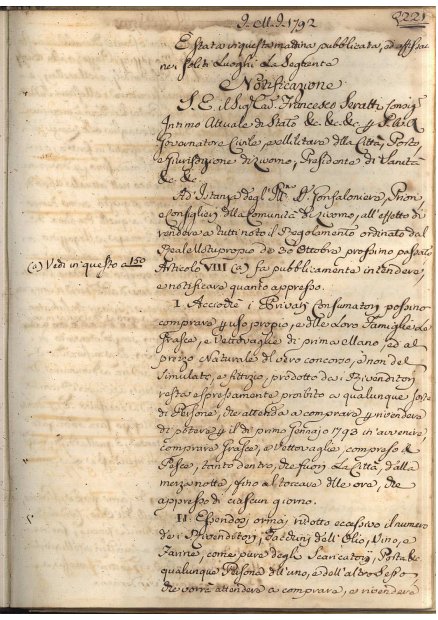 221
1792
È stata in questa mattina pubblicata, ed affissa
nei soliti Luoghi La Seguente
Notificazione
S. E. il Sig. Cav. Francesco Seratti Consig.
Intimo Attuale di Stato &c. &c. &c. S.A.R.
Governatore Civile, e Militare della Città, Porto,
e Giurisdizione di Livorno, Presidente di Sanità
&c. &c.
Ad Istanza degl' Ill.mi Gonfaloniere, Priori
e Consiglieri della Comunità di Livorno, all' effetto di
rendere a tutti noto il Regolamento ordinato dal
Reale Motuproprio de' 30 Ottobre prossimo passato
(a) Vedi in questo a 150
Articolo VIII (a) fa pubblicamente intendere,
e notificare quanto appresso.
I. Acciocchè i Privati Consumatori possino
comprare uso propio, e delle Loro Famiglie Le
Grasce, e Vettovaglie di prima mano, ed al
prezzo Naturale del vero concorso, e non del
simulato, e fittizio, prodotto da i Rivenditori
resta espressamente proibito a qualunque sorte
di Persone, che attenda a comprare rivendere
di potere il dì primo Gennajo 1793 in avvenire,
comprare Grasce, e Vettovaglie, compreso il
Pesce, tanto dentro, che fuori La Città, dalla
mezza notte, fino al tocco delle ore, che
appresso di ciascun giorno.
II. Essendosi ormai ridotto eccessivo il numero
de i Rivenditori, dell' Olio, Vino, e
Farine, come pure degli Scaricatori,
qualunque Persone dell' uno, e dell' altro Sesso
che vorrà attendere a comprare, e rivendere